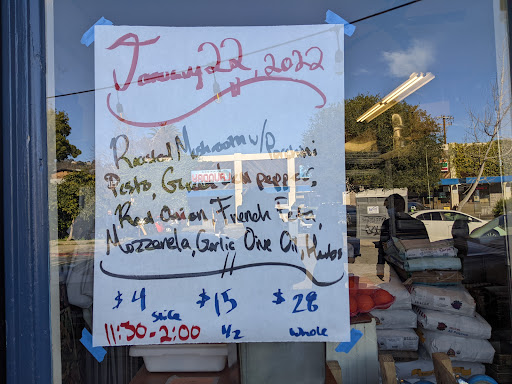 January 22, 2022
Roasted Mushroom w/ Porcini
Pesto, Green bell peppers,
Red Onion, French Feta,
Mozzarela, Garlic Olive Oil, Herbs
$4 $15 $28
Slice 1/2 Whole
11:30-2:00